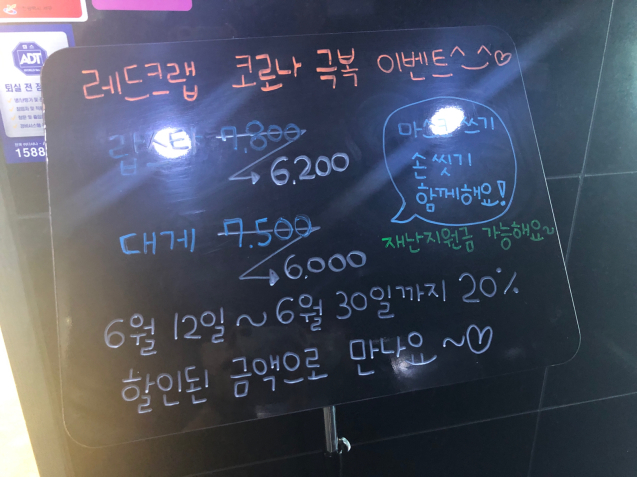 레드크랩 코로나 극복 이벤트^^♡
랍스타 7,800
→ 6,200
마스크 쓰기
손 씻기
함께해요!
대게 7.500
→ 6.000
재난지원금 가능해요~
6월 12일 ~ 6월 30일까지 20%
할인된 금액으로 만나요 ~♡
ADT
퇴실 전 점
1588